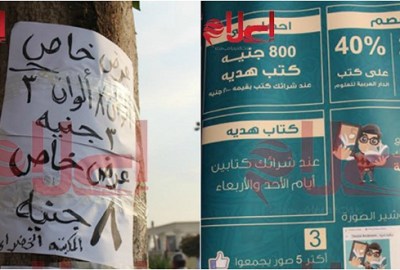 عرض خاص
ألوان ٨ ألوان ٣
٣ جنيه
عرض خاص
٨ جنيه
المكتبة الخضراء
800 جنيه
كتب هديه
عند شرائك كتب بقيمه جنيه
خصم
40%
على كتب
الدار العربية للعلوم
كتاب هديه
عند شرائك كتابين
أيام الأحد والأربعاء
شير الصورة
3
أكتر 5 صور يجمعوا